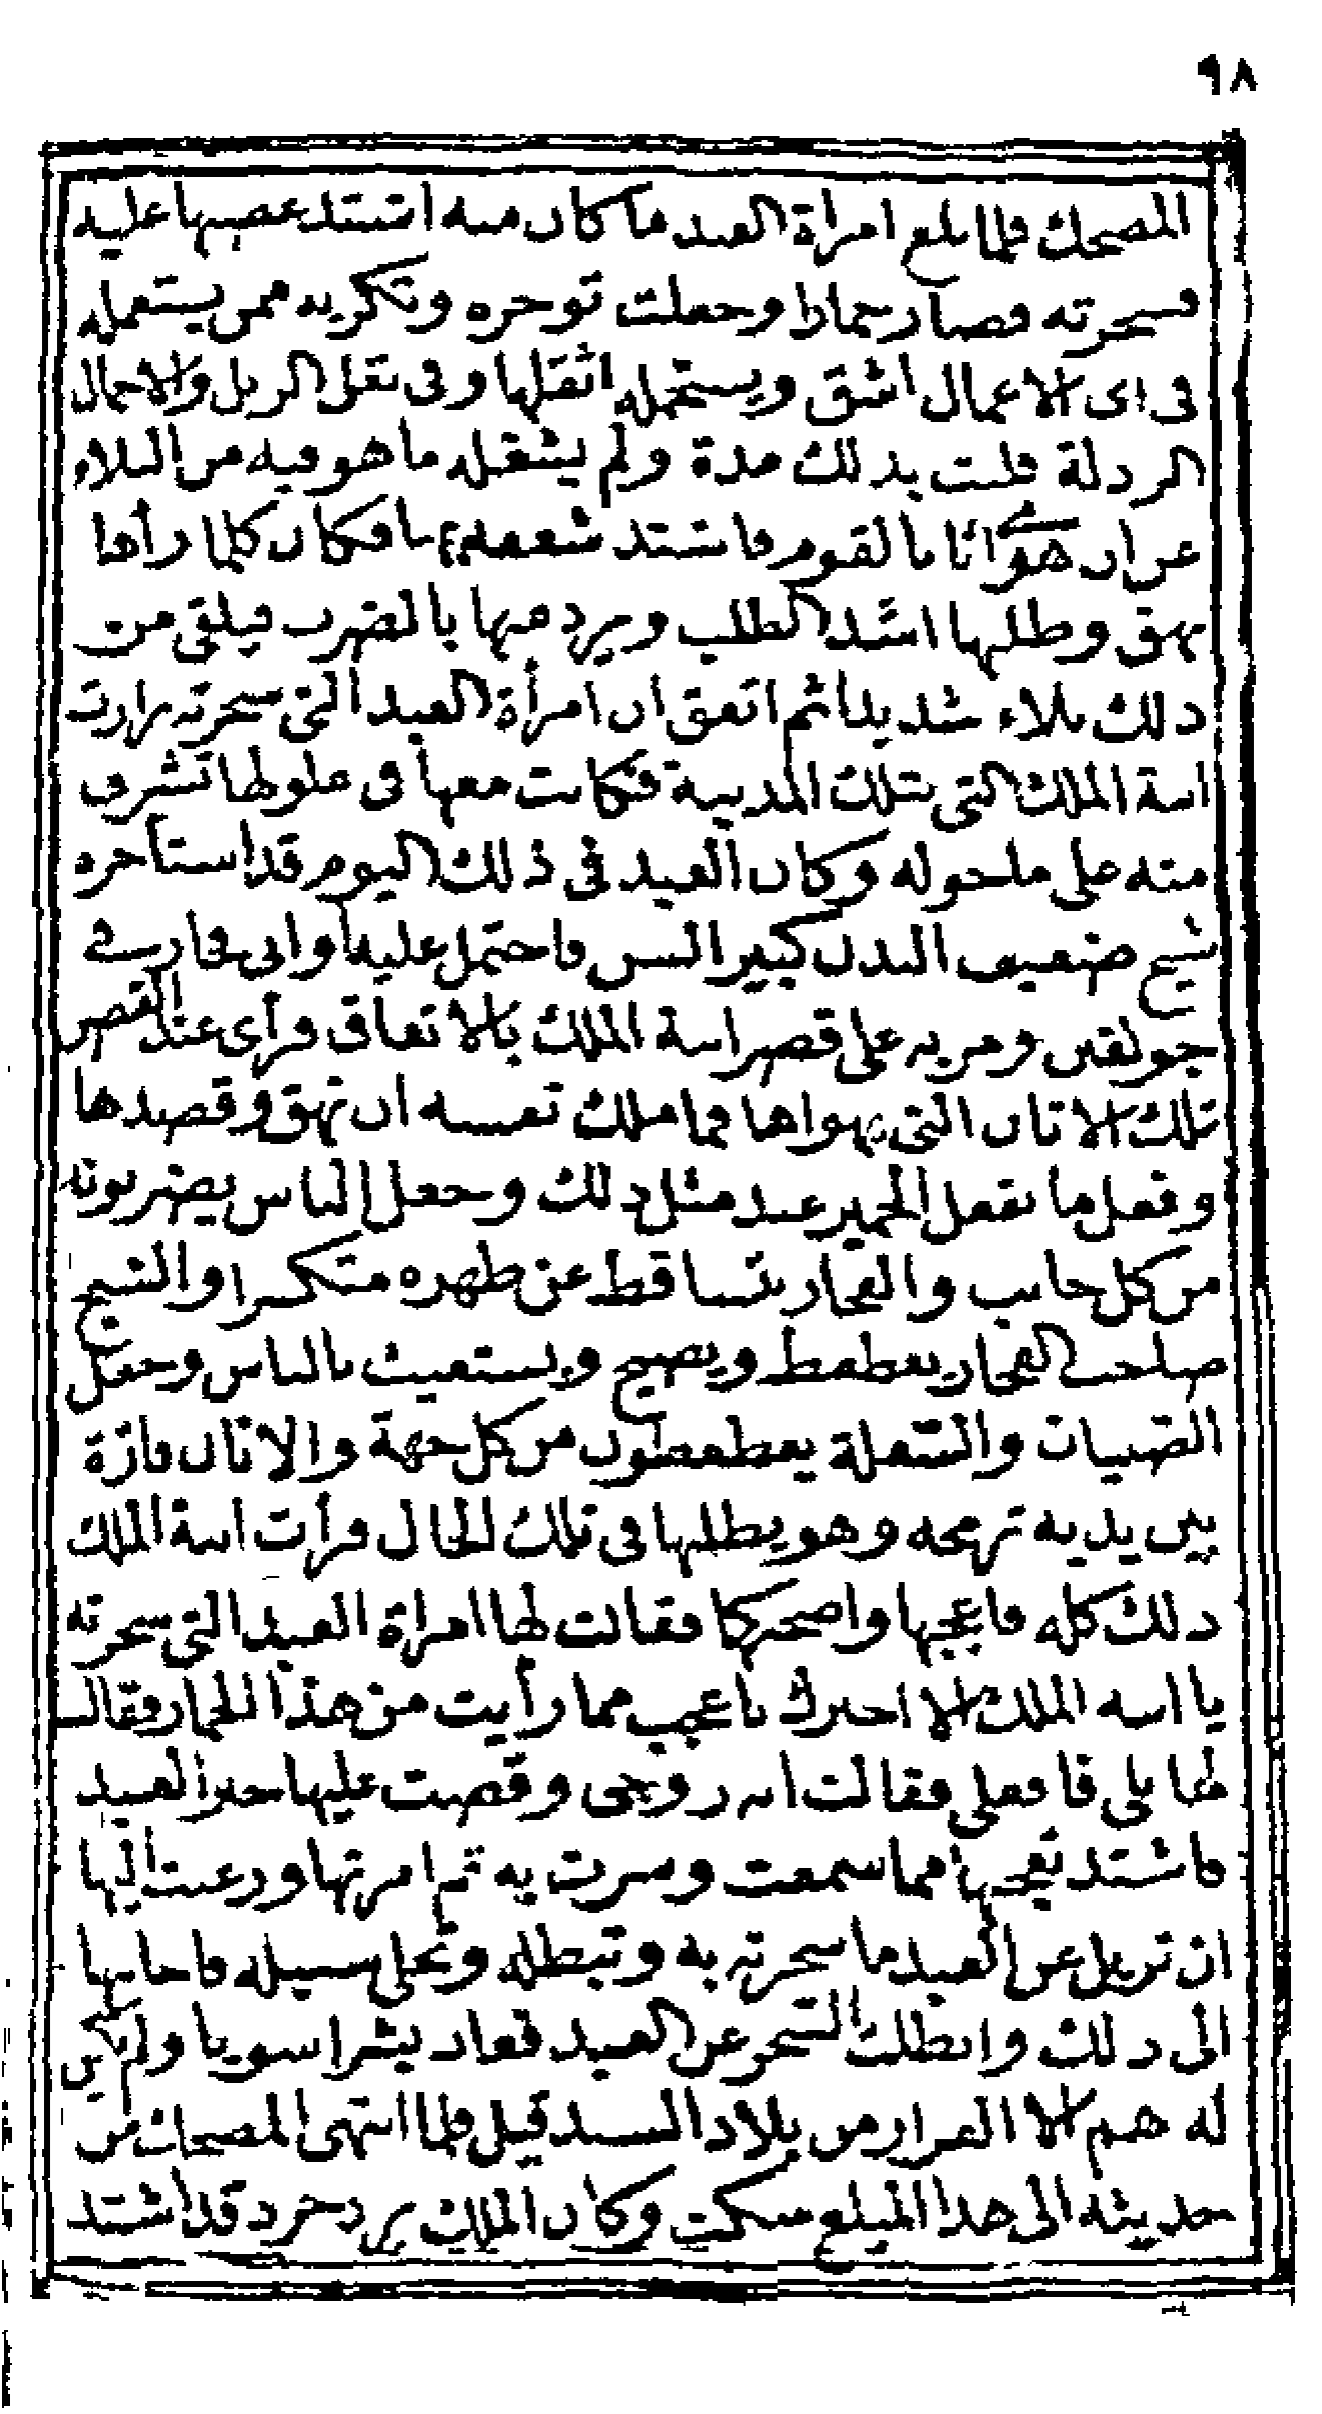 ٩٨
المضحك فلما بلغ امرأة العبد ما كان منه اشتد غضبها عليه
فسحرته فصار حمارا وجعلت توجره وتكريه ممن يستعمله
فى اى الاعمال اشق ويستحمله اثقلها وفى نقل الزبل والاحمال
الرذلة فلبث بذلك مدة ولم يشغله ما هو فيه من البلاء
عن ان هوى اتانا بالقوم فاشتد شغفه بها فكان كلما رأها
نهق وطلبها اشد الطلب ويرد منها بالضرب فيلقى من
ذلك بلاء شديدا ثم اتفق ان امرأة العبد التى سحرته زارت
ابنة الملك التى بتلك المدينة فكانت معها فى علو لها تشرف
منه على ما حوله وكان العبد فى ذلك اليوم قد استأجره
شيخ ضعيف البدن كبير السن فاحتمل عليه أوانى فخار فى
جولقين ومر به على قصر ابنة الملك بالاتفاق فرأى عند القصر
تلك الاتان التى يهواها فما ملك نفسه ان نهق وقصدها
وفعل ما تفعل الحمير عند مثل ذلك وجعل الناس يضربونه
من كل جانب والفخار يتساقط عن ظهره متكسرا والشيخ
صاحب الفخار يعطعط ويصيح ويستغيث بالناس وجعل
الصبيان والسفلة يعطعطون من كل جهة والاتان فازة
بين يديه ترمحه وهو يطلبها فى تلك الحال فرأت ابنة الملك
ذلك كله فاعجبها واضحكها فقالت لها امرأة العبد التى سحرته
يا ابنة الملك الا اخبرك باعجب مما رأيت من هذا الحمار فقالت
لها بلى فافعلى فقالت انه زوجى وقصت عليها خبر العبد
فاشتد تعجبها مما سمعت وسرت به ثم امرتها ورغبت اليها
ان تزيل عن العبد ما سحرته به وتبطله وتخلى سبيله فاجابتها
الى ذلك وابطلت السحر عن العبد فعاد بشرا سويا ولم يكن
له هم الا الفرار من بلاد السند قيل فلما انتهى المضحك من
حديثه الى هذا المبلغ سكت وكان الملك يزدجرد قد اشتد